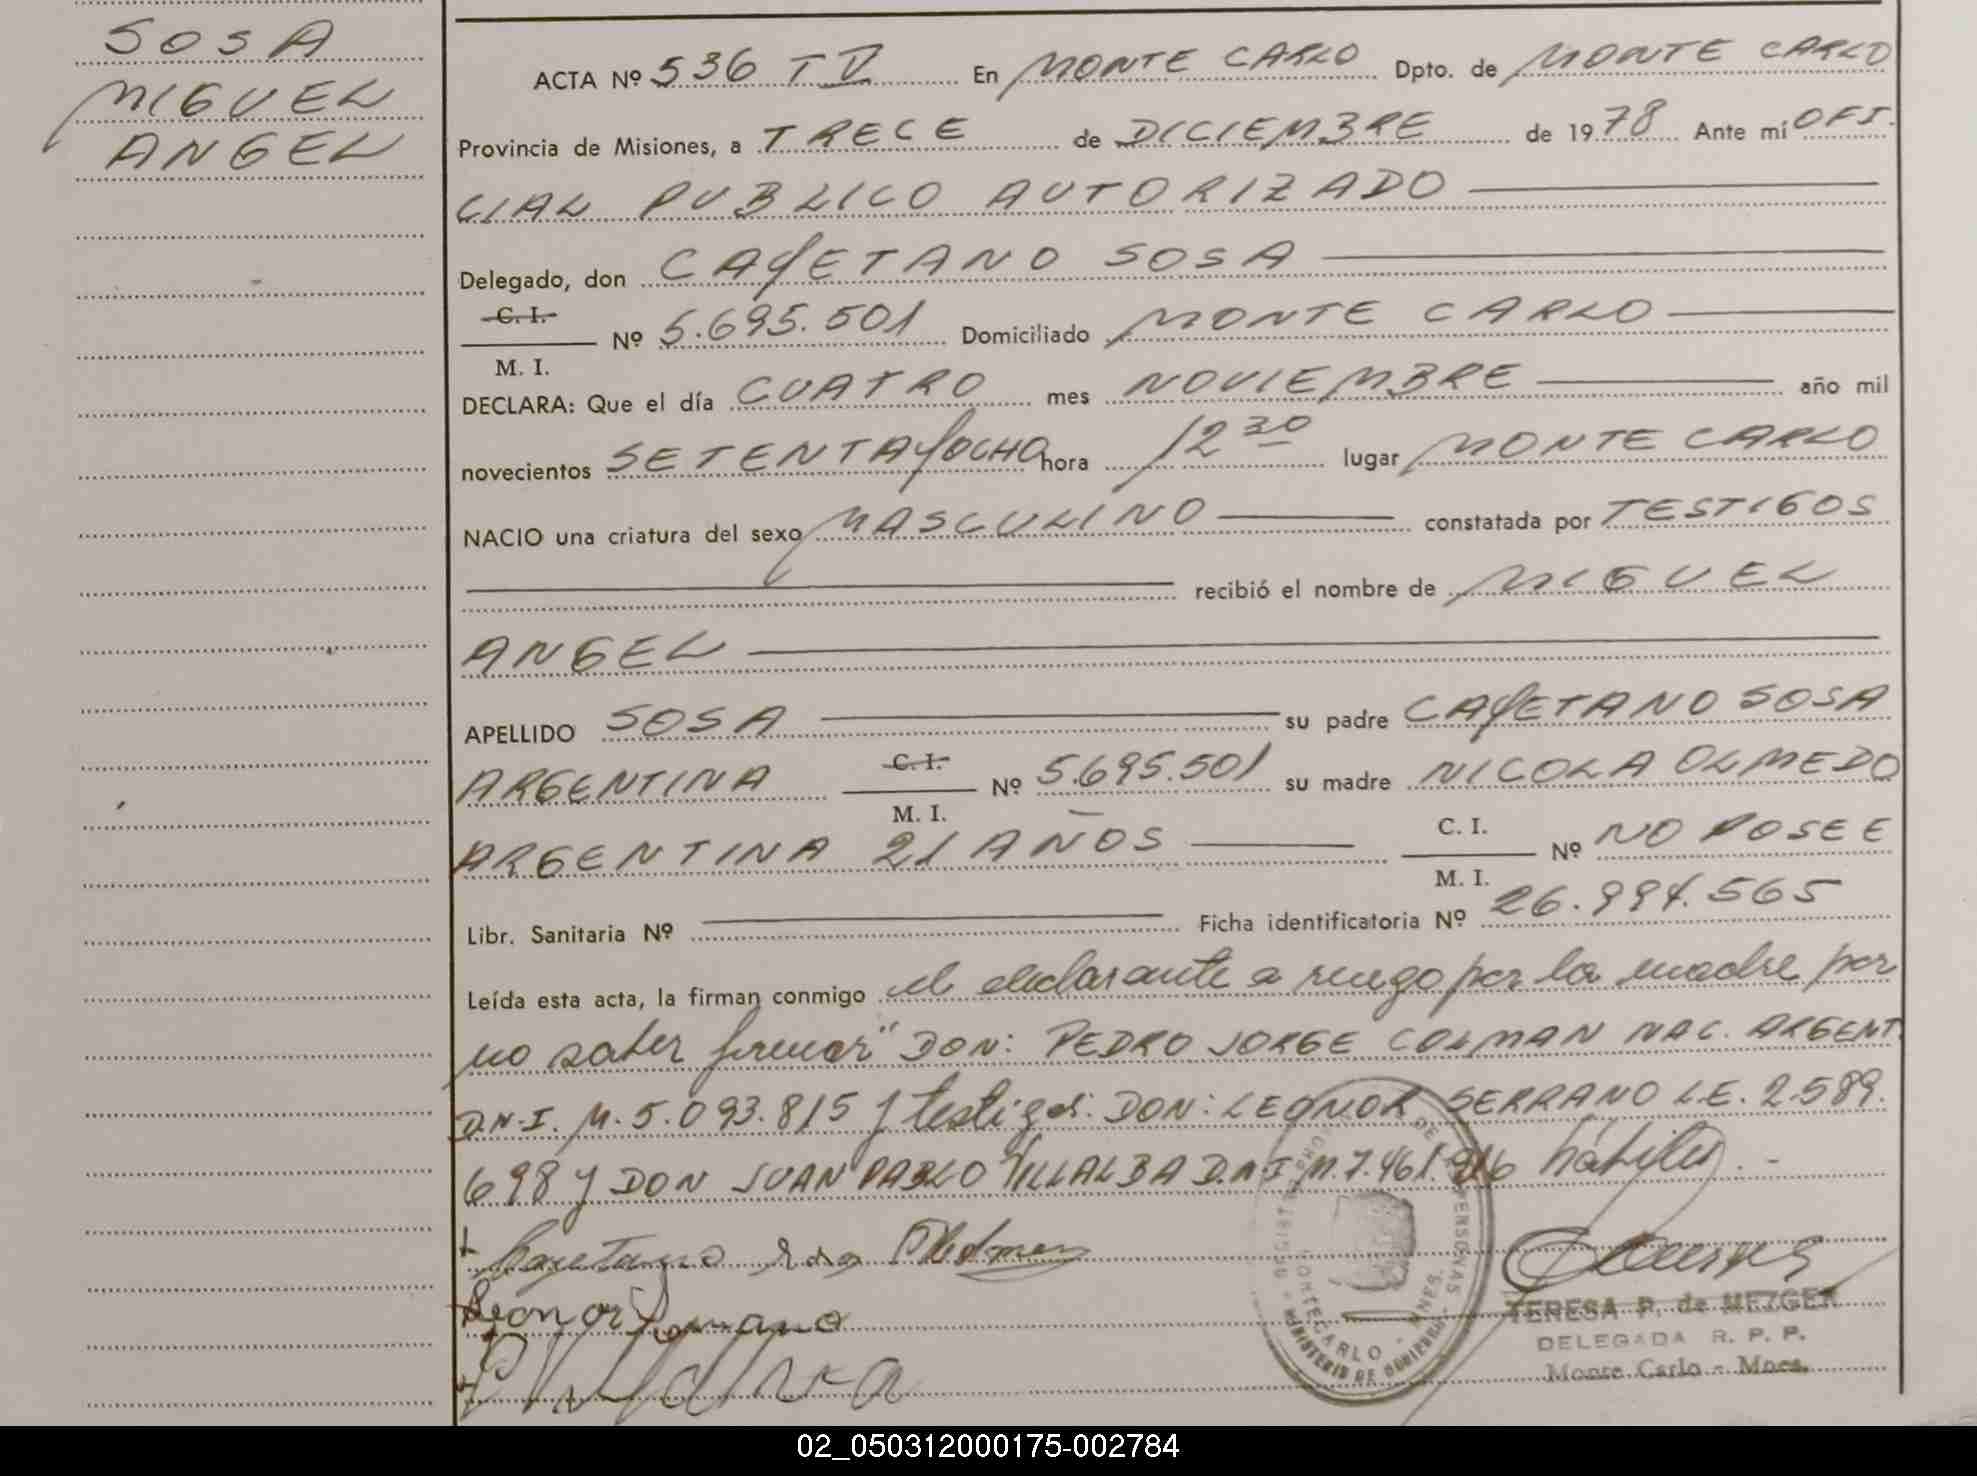 SOSA
MIGUEL
ANGEL
ACTA Nº 536 T V En MONTE CARLO Dpto. de MONTE CARLO
Provincia de Misiones, a TRECE de DICIEMBRE de 1978 Ante mí OFI.
CIAL PUBLICO AUTORIZADO
Delegado, don CAYETANO SOSA
C. I.
M. I.
Nº 5.695.501 Domiciliado MONTE CARLO
DECLARA: Que el día CUATRO mes NOVIEMBRE año mil
novecientos SETENTAYOCHO hora 12 30 lugar MONTE CARLO
NACIO una criatura del sexo MASCULINO constatada por TESTIGOS
recibió el nombre de MIGUEL
ANGEL
APELLIDO SOSA su padre CAYETANO SOSA
ARGENTINA C. I. M. I. Nº 5.695.501 su madre NICOLA OLMEDO
ARGENTINA 21 AÑOS C. I. M. I. Nº NO POSEE
Libr. Sanitaria Nº Ficha identificatoria Nº 26.994.565
Leída esta acta, la firman conmigo el declarante a ruego por la madre por
no saber firmar" DON: PEDRO JORGE COLMAN NAC. ARGENT.
D.N.I. M. 5.093.815 y testigos: DON: LEONOR SERRANO L.E. 2.589.
698 y DON JUAN PABLO VILLALBA D.N.I. M. 7.461.916 hábiles.-
Cayetano Sosa
Leonor Serrano
TERESA P. de METZGER
DELEGADA R. P. P.
Monte Carlo - Mnes.
DE PERSONAS
MONTECARLO - MNES.
MINISTERIO DE GOBIERNO
02_050312000175-002784